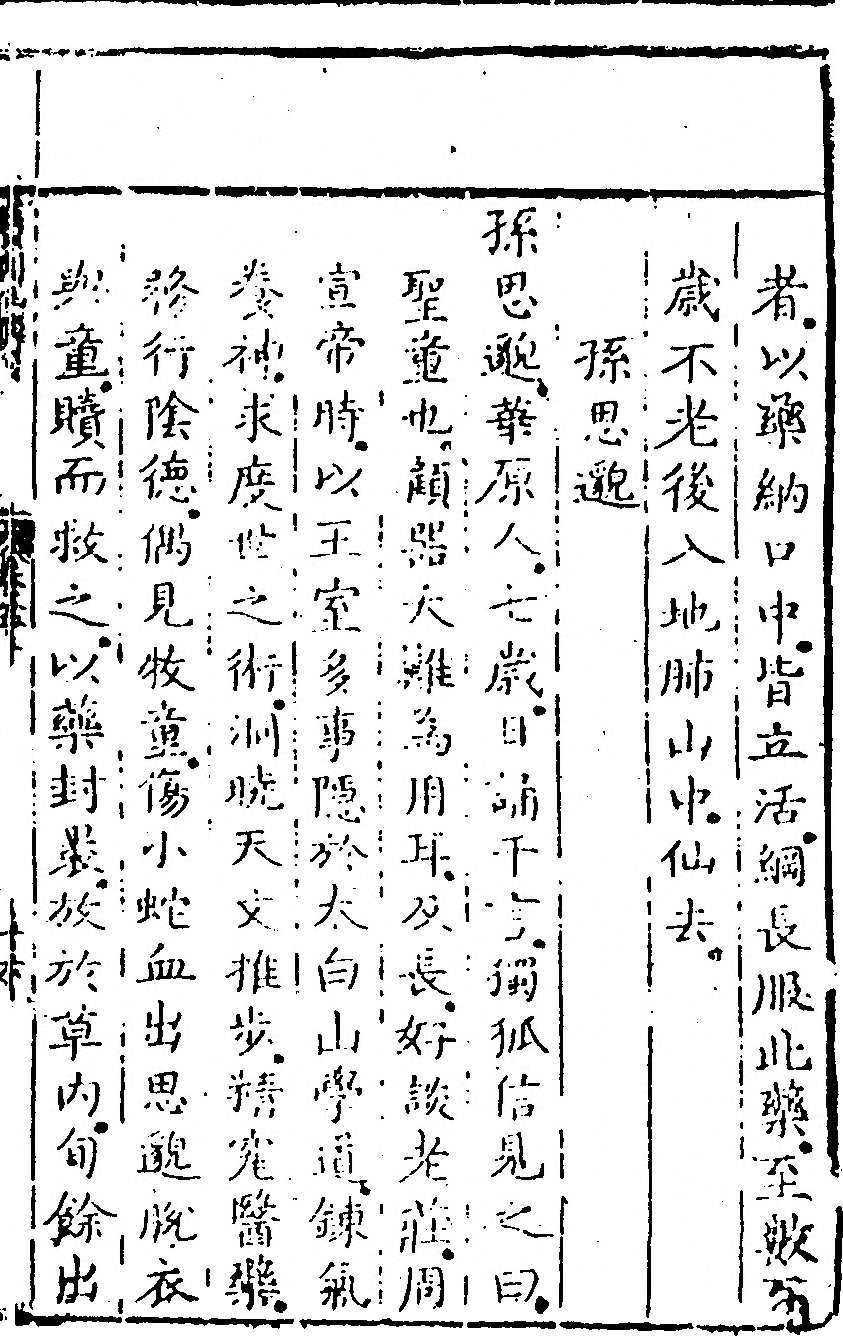 者以藥納口中皆立活綱長服此藥至數百
歲不老後入地肺山中仙去
孫思邈
孫思邈華原人七歲日誦千言獨孤信見之曰
聖童也顧器大難為用耳及長好談老莊周
宣帝時以王室多事隱於太白山學道鍊氣
養神求度世之術洞曉天文推步精究醫藥
務行陰德偶見牧童傷小蛇血出思邈脫衣
與童贖而救之以藥封裹放於草內旬餘出